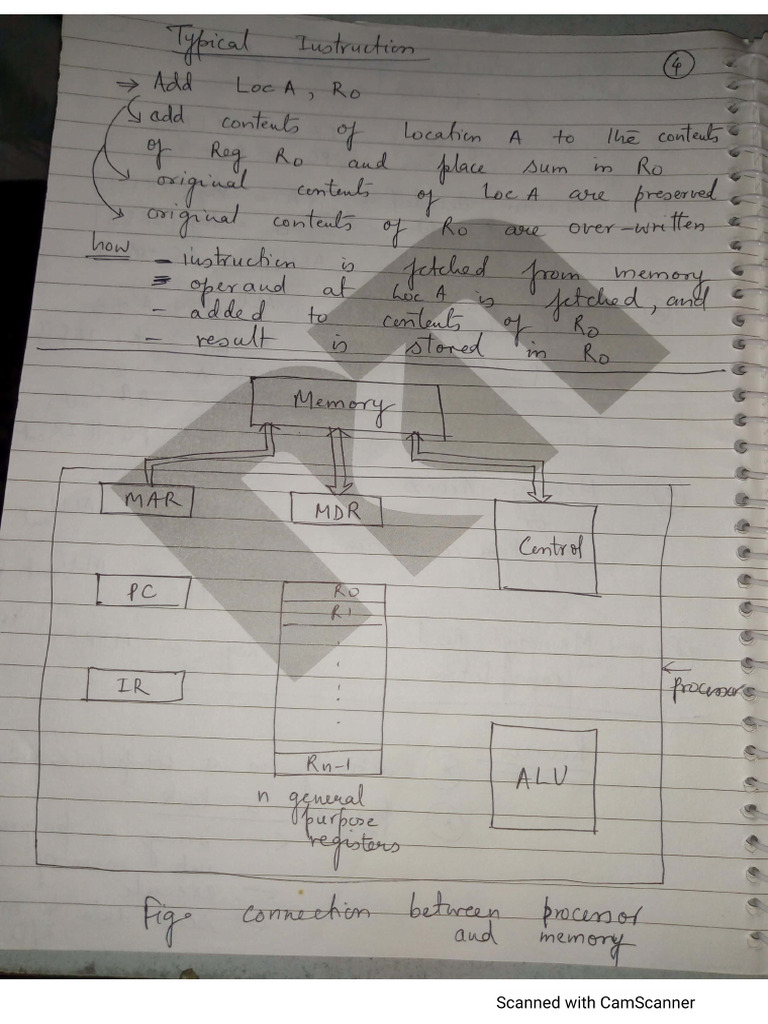 Typical Instruction
4
→ Add LOC A, R0
add contents of location A to the contents
of Reg R0 and place sum in R0
original contents of LOC A are preserved
original contents of R0 are over-written
how - instruction is fetched from memory
- operand at LOC A is fetched, and
- added to contents of R0
- result is stored in R0
Memory
MAR
MDR
Control
PC
R0
R1
IR
Processor
Rn-1
ALU
n general
purpose
registers
Fig. connection between processor
and memory
Scanned with CamScanner